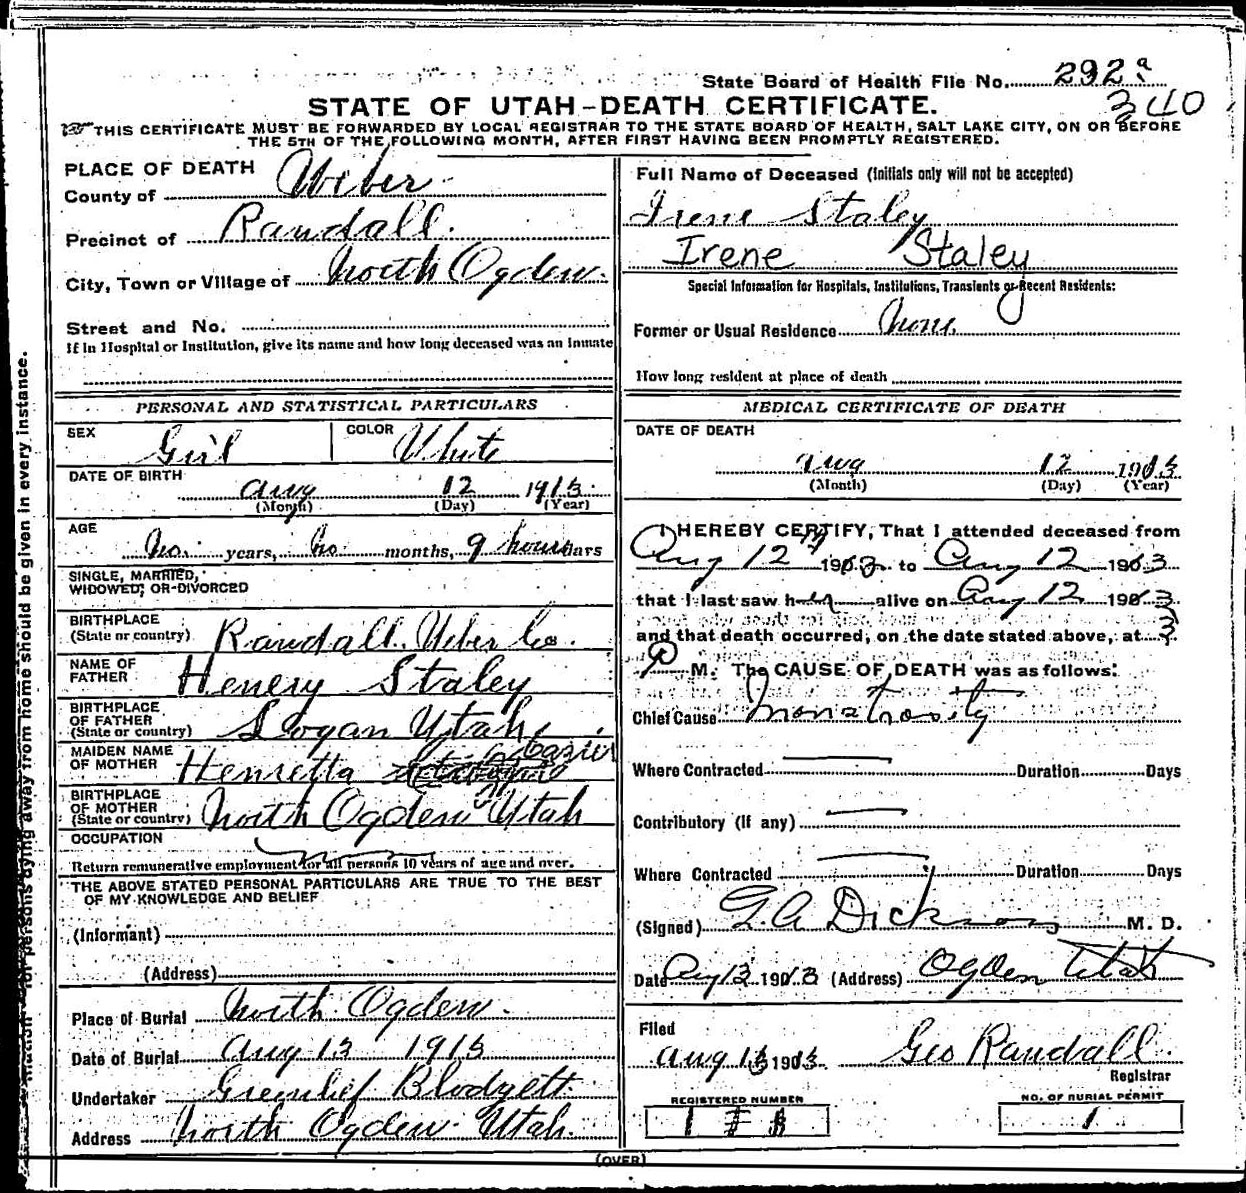 State Board of Health File No. 292a
340
STATE OF UTAH-DEATH CERTIFICATE.
THIS CERTIFICATE MUST BE FORWARDED BY LOCAL REGISTRAR TO THE STATE BOARD OF HEALTH, SALT LAKE CITY, ON OR BEFORE
THE 5TH OF THE FOLLOWING MONTH, AFTER FIRST HAVING BEEN PROMPTLY REGISTERED.
PLACE OF DEATH
County of Weber
Precinct of Randall.
City, Town or Village of North Ogden.
Street and No.
If in Hospital or Institution, give its name and how long deceased was an Inmate
PERSONAL AND STATISTICAL PARTICULARS
SEX Girl COLOR White
DATE OF BIRTH
Aug 12 1913
(Month) (Day) (Year)
AGE
No. years, No months, 9 hours
SINGLE, MARRIED,
WIDOWED, OR DIVORCED
BIRTHPLACE
(State or country) Randall. Weber Co.
NAME OF
FATHER Henery Staley
BIRTHPLACE
OF FATHER
(State or country) Logan Utah
MAIDEN NAME
OF MOTHER Henretta
BIRTHPLACE
OF MOTHER
(State or country) North Ogden Utah
OCCUPATION
Return remunerative employment for all persons 10 years of age and over.
THE ABOVE STATED PERSONAL PARTICULARS ARE TRUE TO THE BEST
OF MY KNOWLEDGE AND BELIEF
(Informant)
(Address)
Place of Burial North Ogden.
Date of Burial Aug 13 1913
Undertaker Greenlief Blodgett
Address North Ogden Utah.
Full Name of Deceased (Initials only will not be accepted)
Irene Staley
Irene Staley
Special Information for Hospitals, Institutions, Transients or Recent Residents:
Former or Usual Residence None.
How long resident at place of death
MEDICAL CERTIFICATE OF DEATH
DATE OF DEATH
Aug 12 1913
(Month) (Day) (Year)
I HEREBY CERTIFY, That I attended deceased from
Aug 12th 1913 to Aug 12 1913
that I last saw her alive on Aug 12 1913
and that death occurred, on the date stated above, at 3
P M. The CAUSE OF DEATH was as follows:
Chief Cause Monstrosity
Where Contracted Duration Days
Contributory (If any)
Where Contracted Duration Days
(Signed) G. A Dickson M. D.
Date Aug 13 1913 (Address) Ogden Utah
Filed
Aug 13 1913 Geo Randall.
Registrar
REGISTERED NUMBER
NO. OF BURIAL PERMIT
1
(OVER)
for persons dying away from home should be given in every instance.